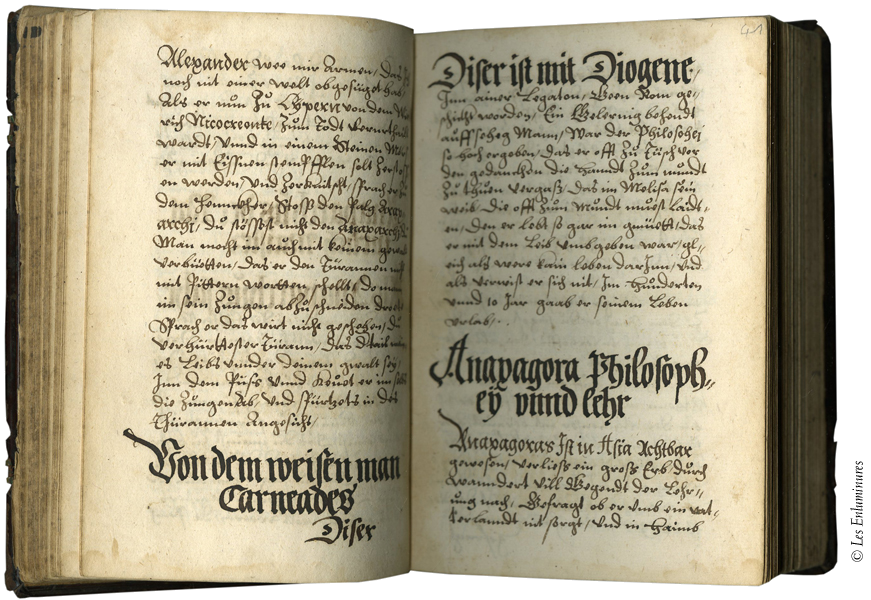 Alexander wee mir Armen / Das
noch nit einer welt obgesigt hab /
Als er nun Zu Cÿpern von dem
rich Nicocreonte / Zum Todt verurthailt
wardt / vnnd in einem Steinen
er mit Eissnen stempfflen solt
en werden / vnd Zerknitscht / sprach er Zu
dem Henncher / Stoss den Palg Anax
archi / du stössest nicht den Anaxarchi
Man mocht im auch mit keinem
verbietten / Das er den Türannen nit
mit Pittern wortten / schellt / do man
im sein Zungen abzuschneiden
Sprach er das wirt nicht geschehen / du
verhürtester Türann / Das
es Leibs vnnder deinem gwalt seÿ /
Inn dem Peiss vnnd Keüet er im
die Zungen ab / vnd spürtzets in des
Thürannen Angesicht /
Von dem weisen man
Carneades
Diser
421
Diser ist mit Diogene /
Inn einer Legation / Geen Rom ge=
schickt worden / Ein gelernig behendt
Mann / War der Philosophei
so hoch ergeben / das er offt Zu Tisch vor
den gedancken die Hanndt Zum mundt
Zu thuen vergass / Das im Melissa sein
weib / Die offt Zum Mundt muest laidt=
en / Den er lebt so gar im gmüett / das
er mit dem Leib vmbgeben war / gl=
eich als were kain leben darInn / vnd
als verwist er sich nit / Im Hunderten
vnnd 10 Jar gaab er seinem Leben
vrlab / .
Anaxagora Philosoph=
eÿ vnnd lehr
Anaxagoras Ist in Asia Achtbar
gewesen / verliess ein gross Erb durch
wanndert vill Gegendt der Lehr=
ung nach / Gefragt ob er vmb ein vat=
terlanndt nit sorgt / vnd in Haimb
© Les Enluminures